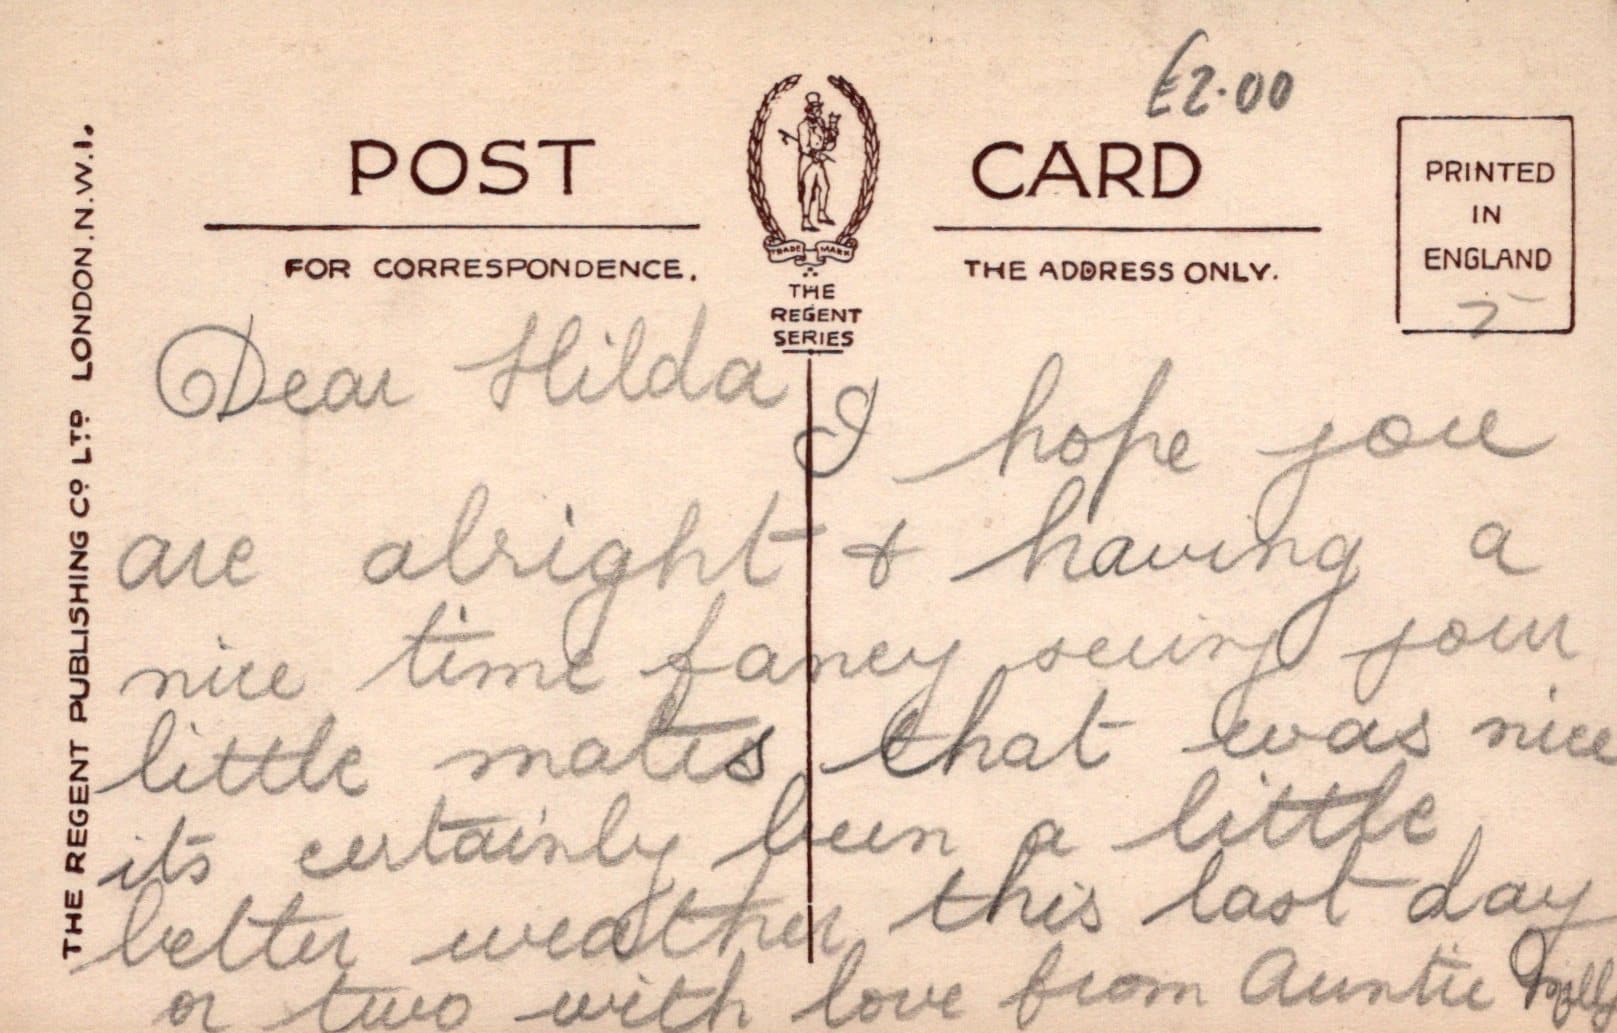 £2.00
POST CARD
FOR CORRESPONDENCE.
THE ADDRESS ONLY.
TRADE MARK
THE
REGENT
SERIES
PRINTED
IN
ENGLAND
THE REGENT PUBLISHING CO LTD LONDON.N.W.1.
Dear Hilda I hope you
are alright & having a
nice time fancy seeing your
little mates that was nice
its certainly been a little
better weather this last day
or two with love from Auntie